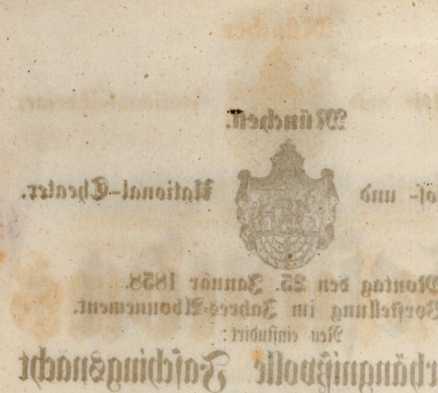 München.
of- und National-Theater.
Montag den 25. Januar 1858.
Vorstellung im Jahres-Abonnement.
Neu einstudirt:
rhängnißvolle Faschingsnacht